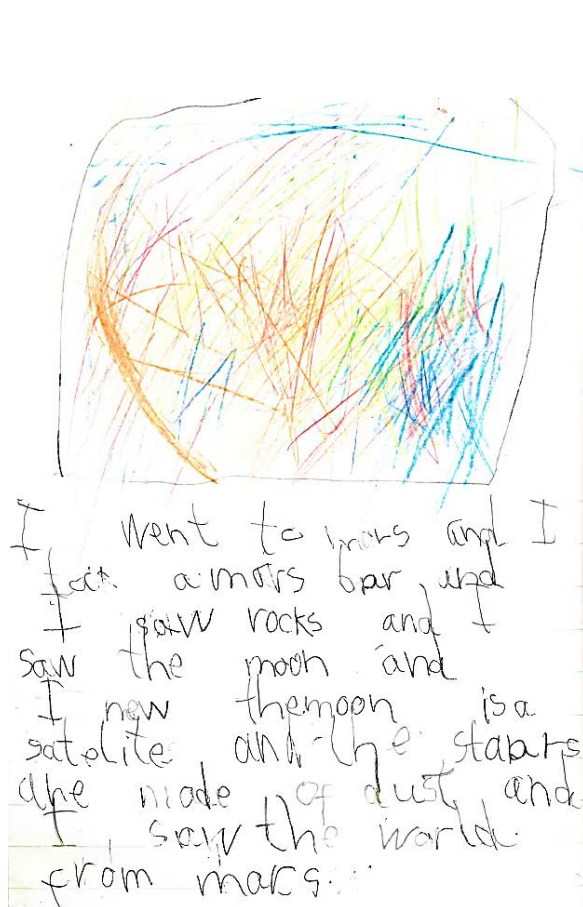 I went to mars and I
took a mars bar and
I saw rocks and I
saw the moon and
I new themoon is a
satelite and the stabrs
are made of dust and
I saw the world
from mars.